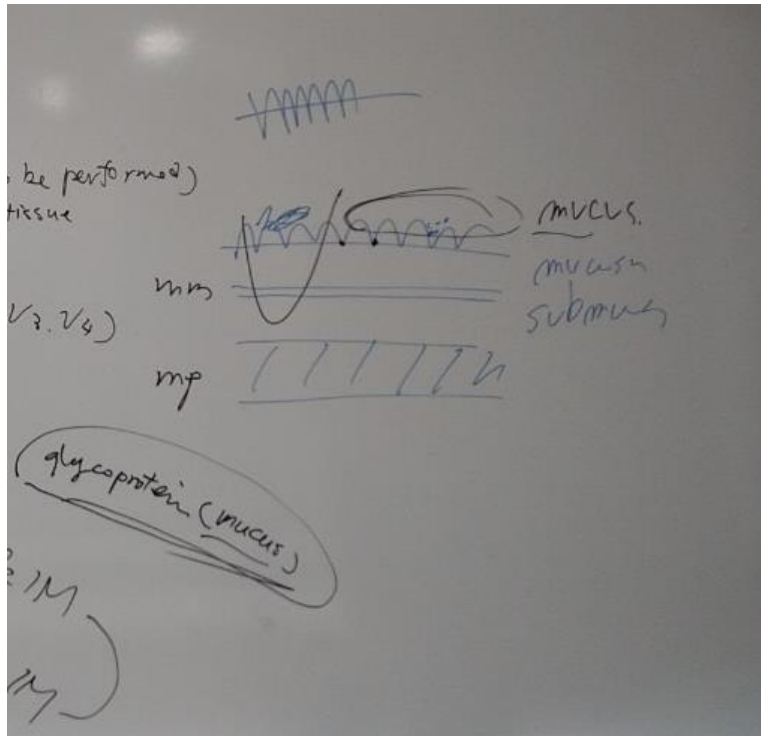 be performed)
tissue
mucus.
mucosa
mm
submucosa
V3.V4)
mp
glycoprotein (mucus)
IM
IM